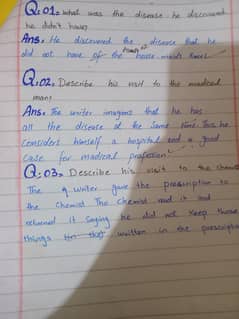 Q:01= What was the disease he discovered
he didn't have?
Ans. He discovered the disease that he
did not have of the house maids knee.
Q:02= Describe his visit to the madical
man?
Ans. The writer imagins that he has
all the disease at the same time. Thus he
considers himself a hospital and a good
case for madical profession.
Q:03= Describe his visit to the chemist
The writer gave the prescription to
the chemist The chemist read it and
returned it saying he did not keep those
things written in the prescription